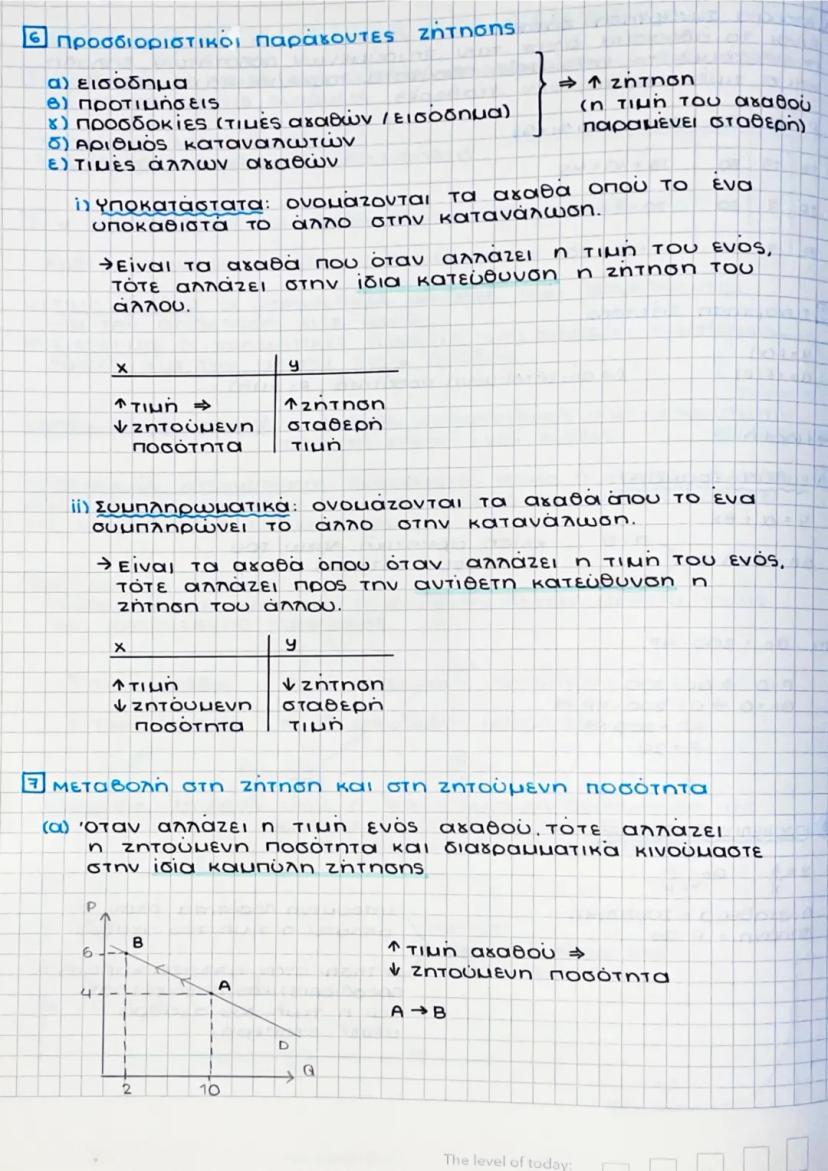 6 Προσδιοριστικοί παράγοντες ζήτησης
α) εισόδημα
β) προτιμήσεις
γ) προσδοκίες (τιμές αγαθών / εισόδημα)
δ) Αριθμός καταναλωτών
ε) Τιμές άλλων αγαθών
⇒ ↑ ζήτηση
(η τιμή του αγαθού
παραμένει σταθερή)
i) Υποκατάστατα: ονομάζονται τα αγαθά οπού το ένα
υποκαθιστά το άλλο στην κατανάλωση.
→ Είναι τα αγαθά που όταν αλλάζει η τιμή του ενός,
τότε αλλάζει στην ίδια κατεύθυνση η ζήτηση του
άλλου.
x y
↑ τιμή ⇒ ↑ ζήτηση
↓ ζητούμενη σταθερή
ποσότητα τιμή
ii) Συμπληρωματικά: ονομάζονται τα αγαθά όπου το ένα
συμπληρώνει το άλλο στην κατανάλωση.
→ Είναι τα αγαθά όπου όταν αλλάζει η τιμή του ενός,
τότε αλλάζει προς την αντίθετη κατεύθυνση η
ζήτηση του άλλου.
x y
↑ τιμή ↓ ζήτηση
↓ ζητούμενη σταθερή
ποσότητα τιμή
7 Μεταβολή στη ζήτηση και στη ζητούμενη ποσότητα
(α) Όταν αλλάζει η τιμή ενός αγαθού, τότε αλλάζει
η ζητούμενη ποσότητα και διαγραμματικά κινούμαστε
στην ίδια καμπύλη ζήτησης
P
6 B
4 A
D
Q
2 10
↑ τιμή αγαθού ⇒
↓ ζητούμενη ποσότητα
A → B
The level of today: